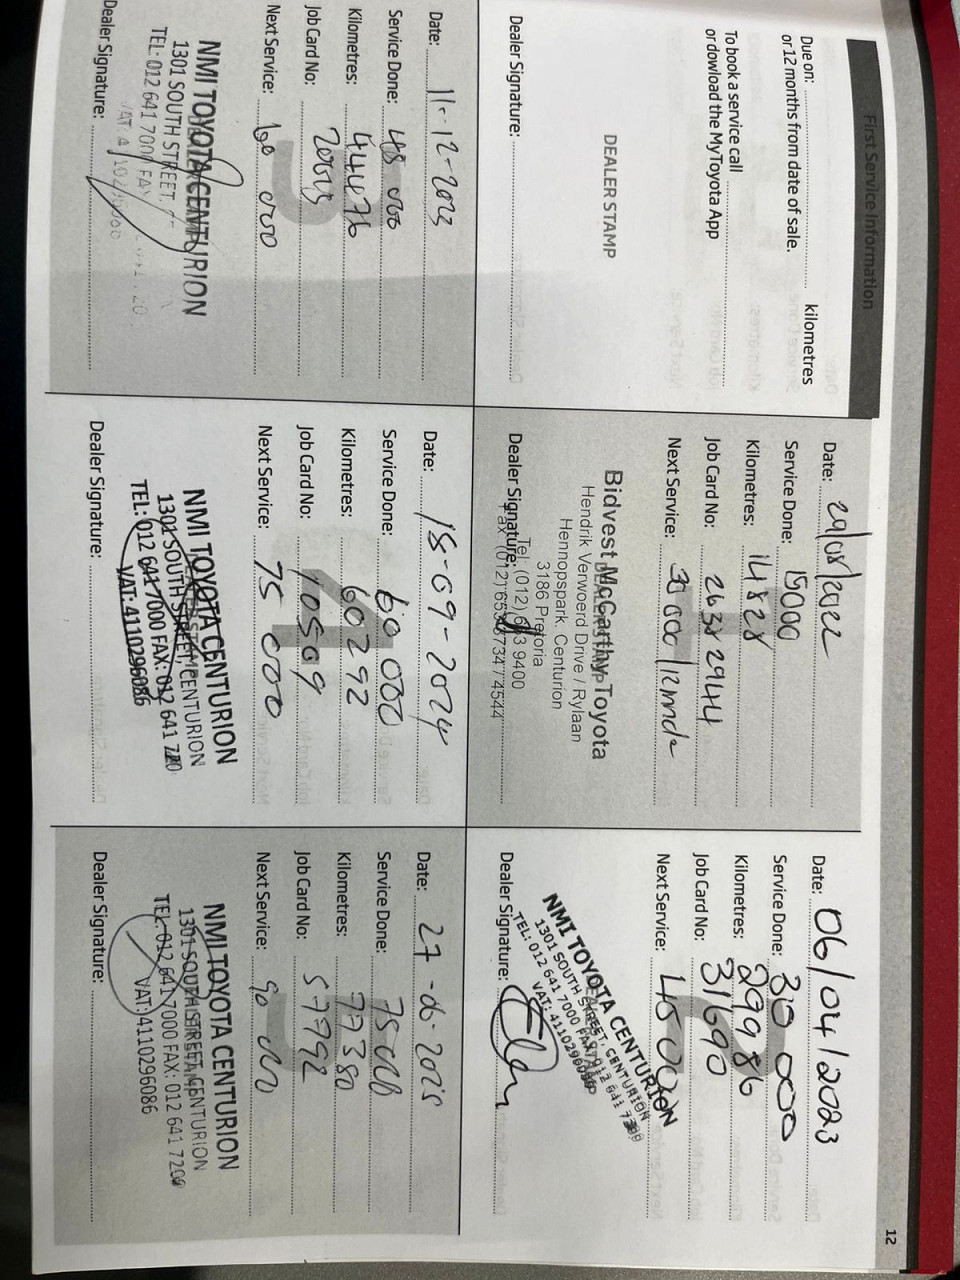 12
First Service Information
Due on: kilometres
or 12 months from date of sale.
To book a service call
or dowload the MyToyota App
DEALER STAMP
Dealer Signature:
Date: 29/08/2022
Service Done: 15000
Kilometres: 14828
Job Card No: 26382944
Next Service: 30 000/12mnde
Bidvest McCarthy Toyota
Hendrik Verwoerd Drive / Rylaan
Hennopspark, Centurion
3186 Pretoria
Tel: (012) 9400
Dealer Signature:
Date: 06/04/2023
Service Done: 30 000
Kilometres: 29986
Job Card No: 31690
Next Service: 45 000
NMI TOYOTA CENTURION
1301 SOUTH STREET, CENTURION
TEL: 012 641 7000 FAX: 012 641
VAT: 4110296086
Dealer Signature:
Date: 11-12-2023
Service Done: 45 000
Kilometres: 44476
Job Card No:
Next Service: 000
NMI TOYOTA CENTURION
1301 SOUTH STREET,
TEL: 012 641 7000 FAX
Dealer Signature:
Date: 18-09-2024
Service Done: 60 000
Kilometres: 60292
Job Card No:
Next Service: 75 000
NMI TOYOTA CENTURION
1301 SOUTH STREET, CENTURION
TEL: 012 641 7000 FAX: 012 641
VAT: 4110296086
Dealer Signature:
Date: 27-06-2025
Service Done: 75 000
Kilometres: 77380
Job Card No: 57792
Next Service: 90 000
NMI TOYOTA CENTURION
1301 SOUTH STREET, CENTURION
TEL: 012 641 7000 FAX: 012 641 7200
VAT: 4110296086
Dealer Signature: